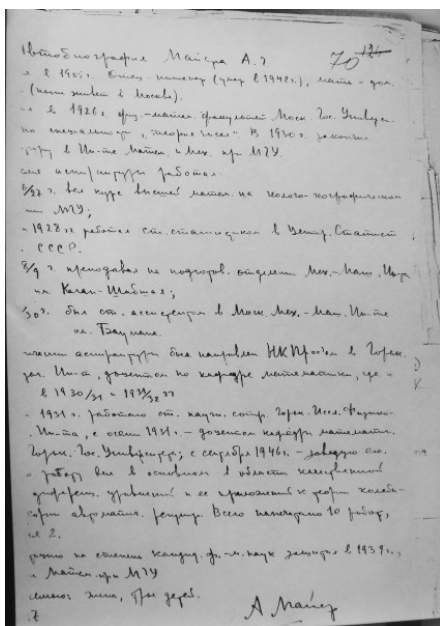 Автобиография Майера А.Г. 70
я в 1905 г. Отец инженер (умер в 1942 г.), мать - дом.
(ныне живет в Москве).
в 1926 г. физ.-матем. факультет Моск. Гос. Универс.
по специальности "теория чисел". В 1930 г. закончил
туру в Ин-те матем. и мех. при МГУ.
аспирантуры работал
г. вел курс высшей матем. на геолого-географическом
МГУ;
- 1928 гг работал ст. статистиком в Центр. Статист
СССР.
8/9 г. преподавал на подготов. отделении Мех.-Маш. Ин-та
им. Каган-Шабшая;
/30 г. был ст. ассистентом в Моск. Мех.-Маш. Ин-те
им. Баумана.
аспирантуры был направлен НКПросом в Горьк.
Ин-т. доцентом по кафедре математики, где и
в 1930/31 и 1931/32 гг
1931 г. работаю ст. научн. сотр. Горьк. Иссл. Физико-
Ин-та, с осени 1931 г. - доцентом кафедры математ.
Горьк. Гос. Университета; с сентября 1946 г. - заведую ею.
работу вел в основном в области качественной
дифферен. уравнений и ее приложений к теории колеба-
теории автоматич. регулир. Всего напечатано 10 работ,
2.
на степень кандид. ф.-м. наук защитил в 1939 г.,
Матем. при МГУ
жена, трое детей.
А Майер
7